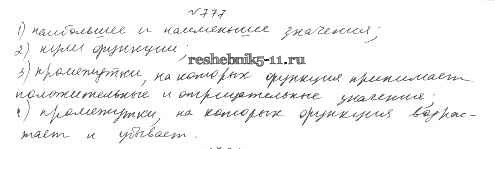 №777
1) наибольшее и наименьшее значения;
2) нули функции;
reshebnik5-11.ru
3) промежутки, на которых функция принимает
положительные и отрицательные значения;
4) промежутки, на которых функция возрас-
тает и убывает.